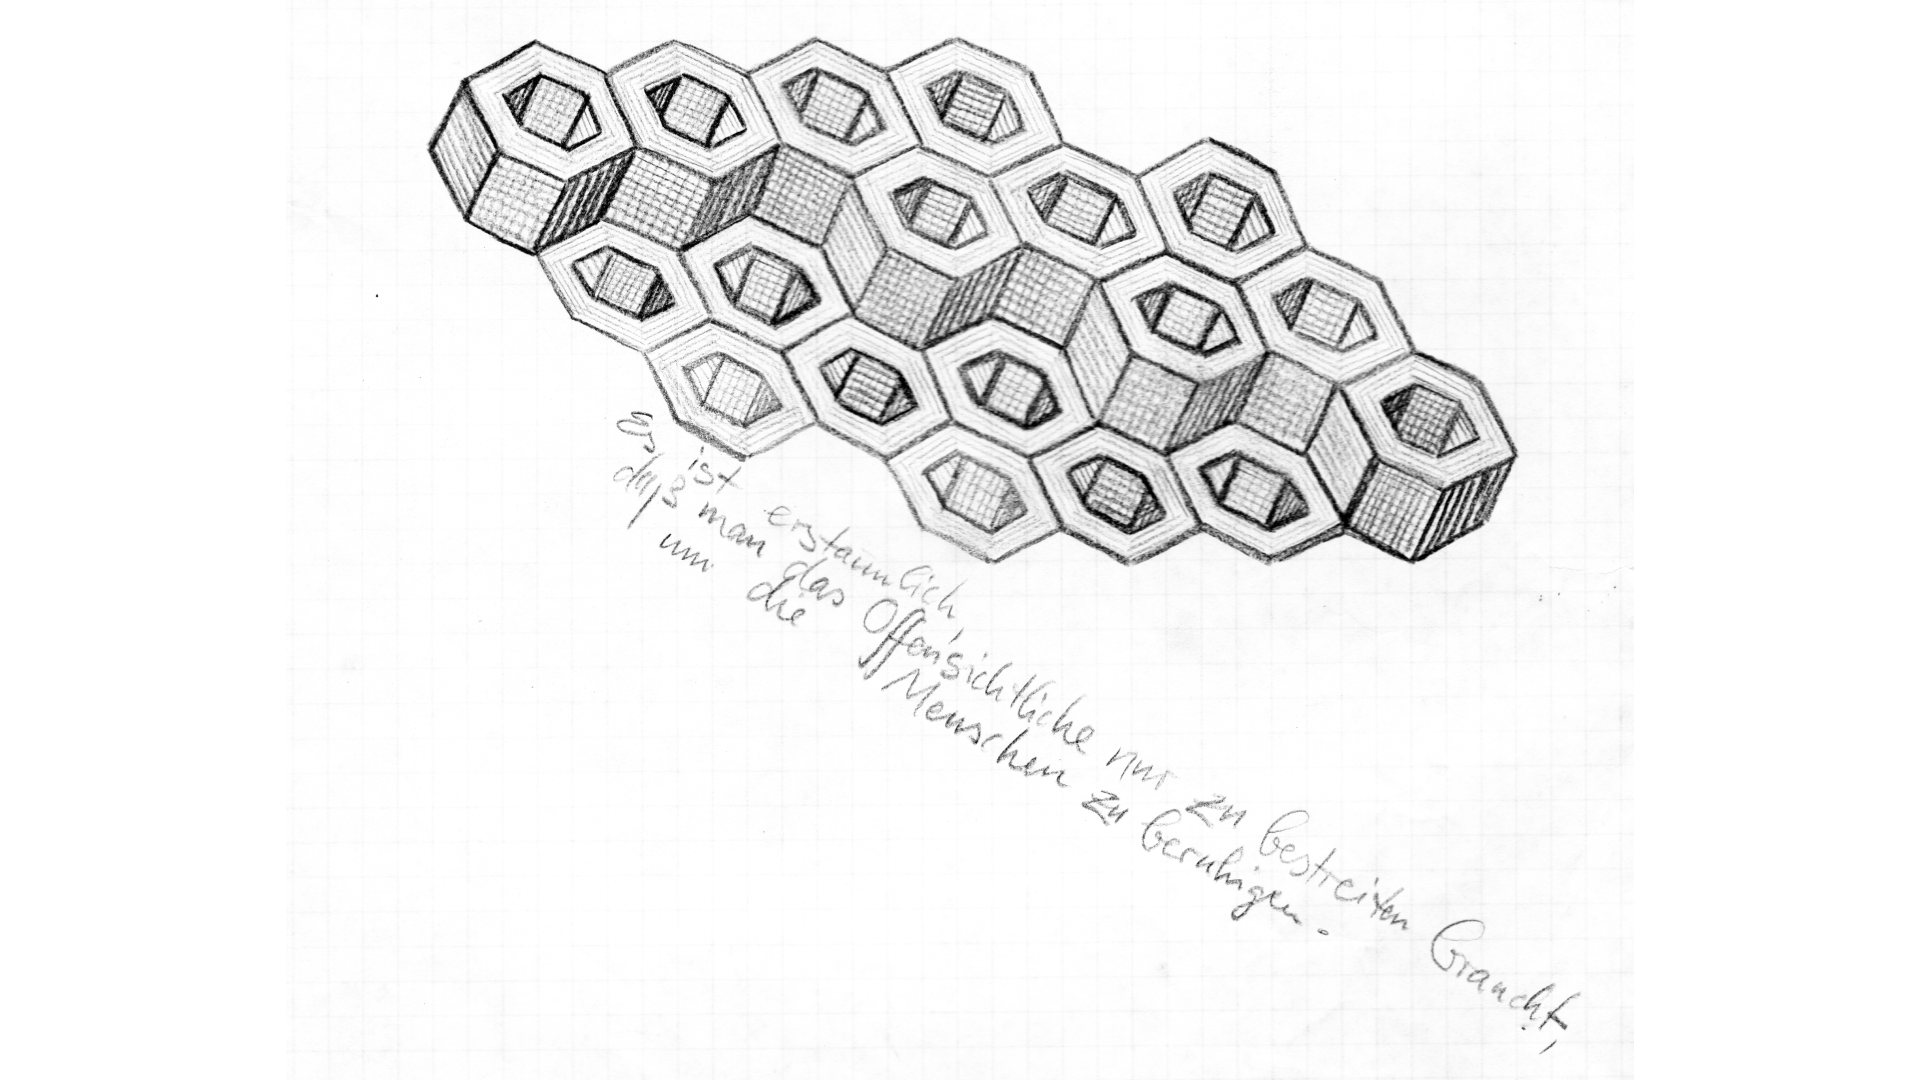 Es ist erstaunlich,
daß man das Offensichtliche nur zu bestreiten braucht,
um die Menschen zu beruhigen.